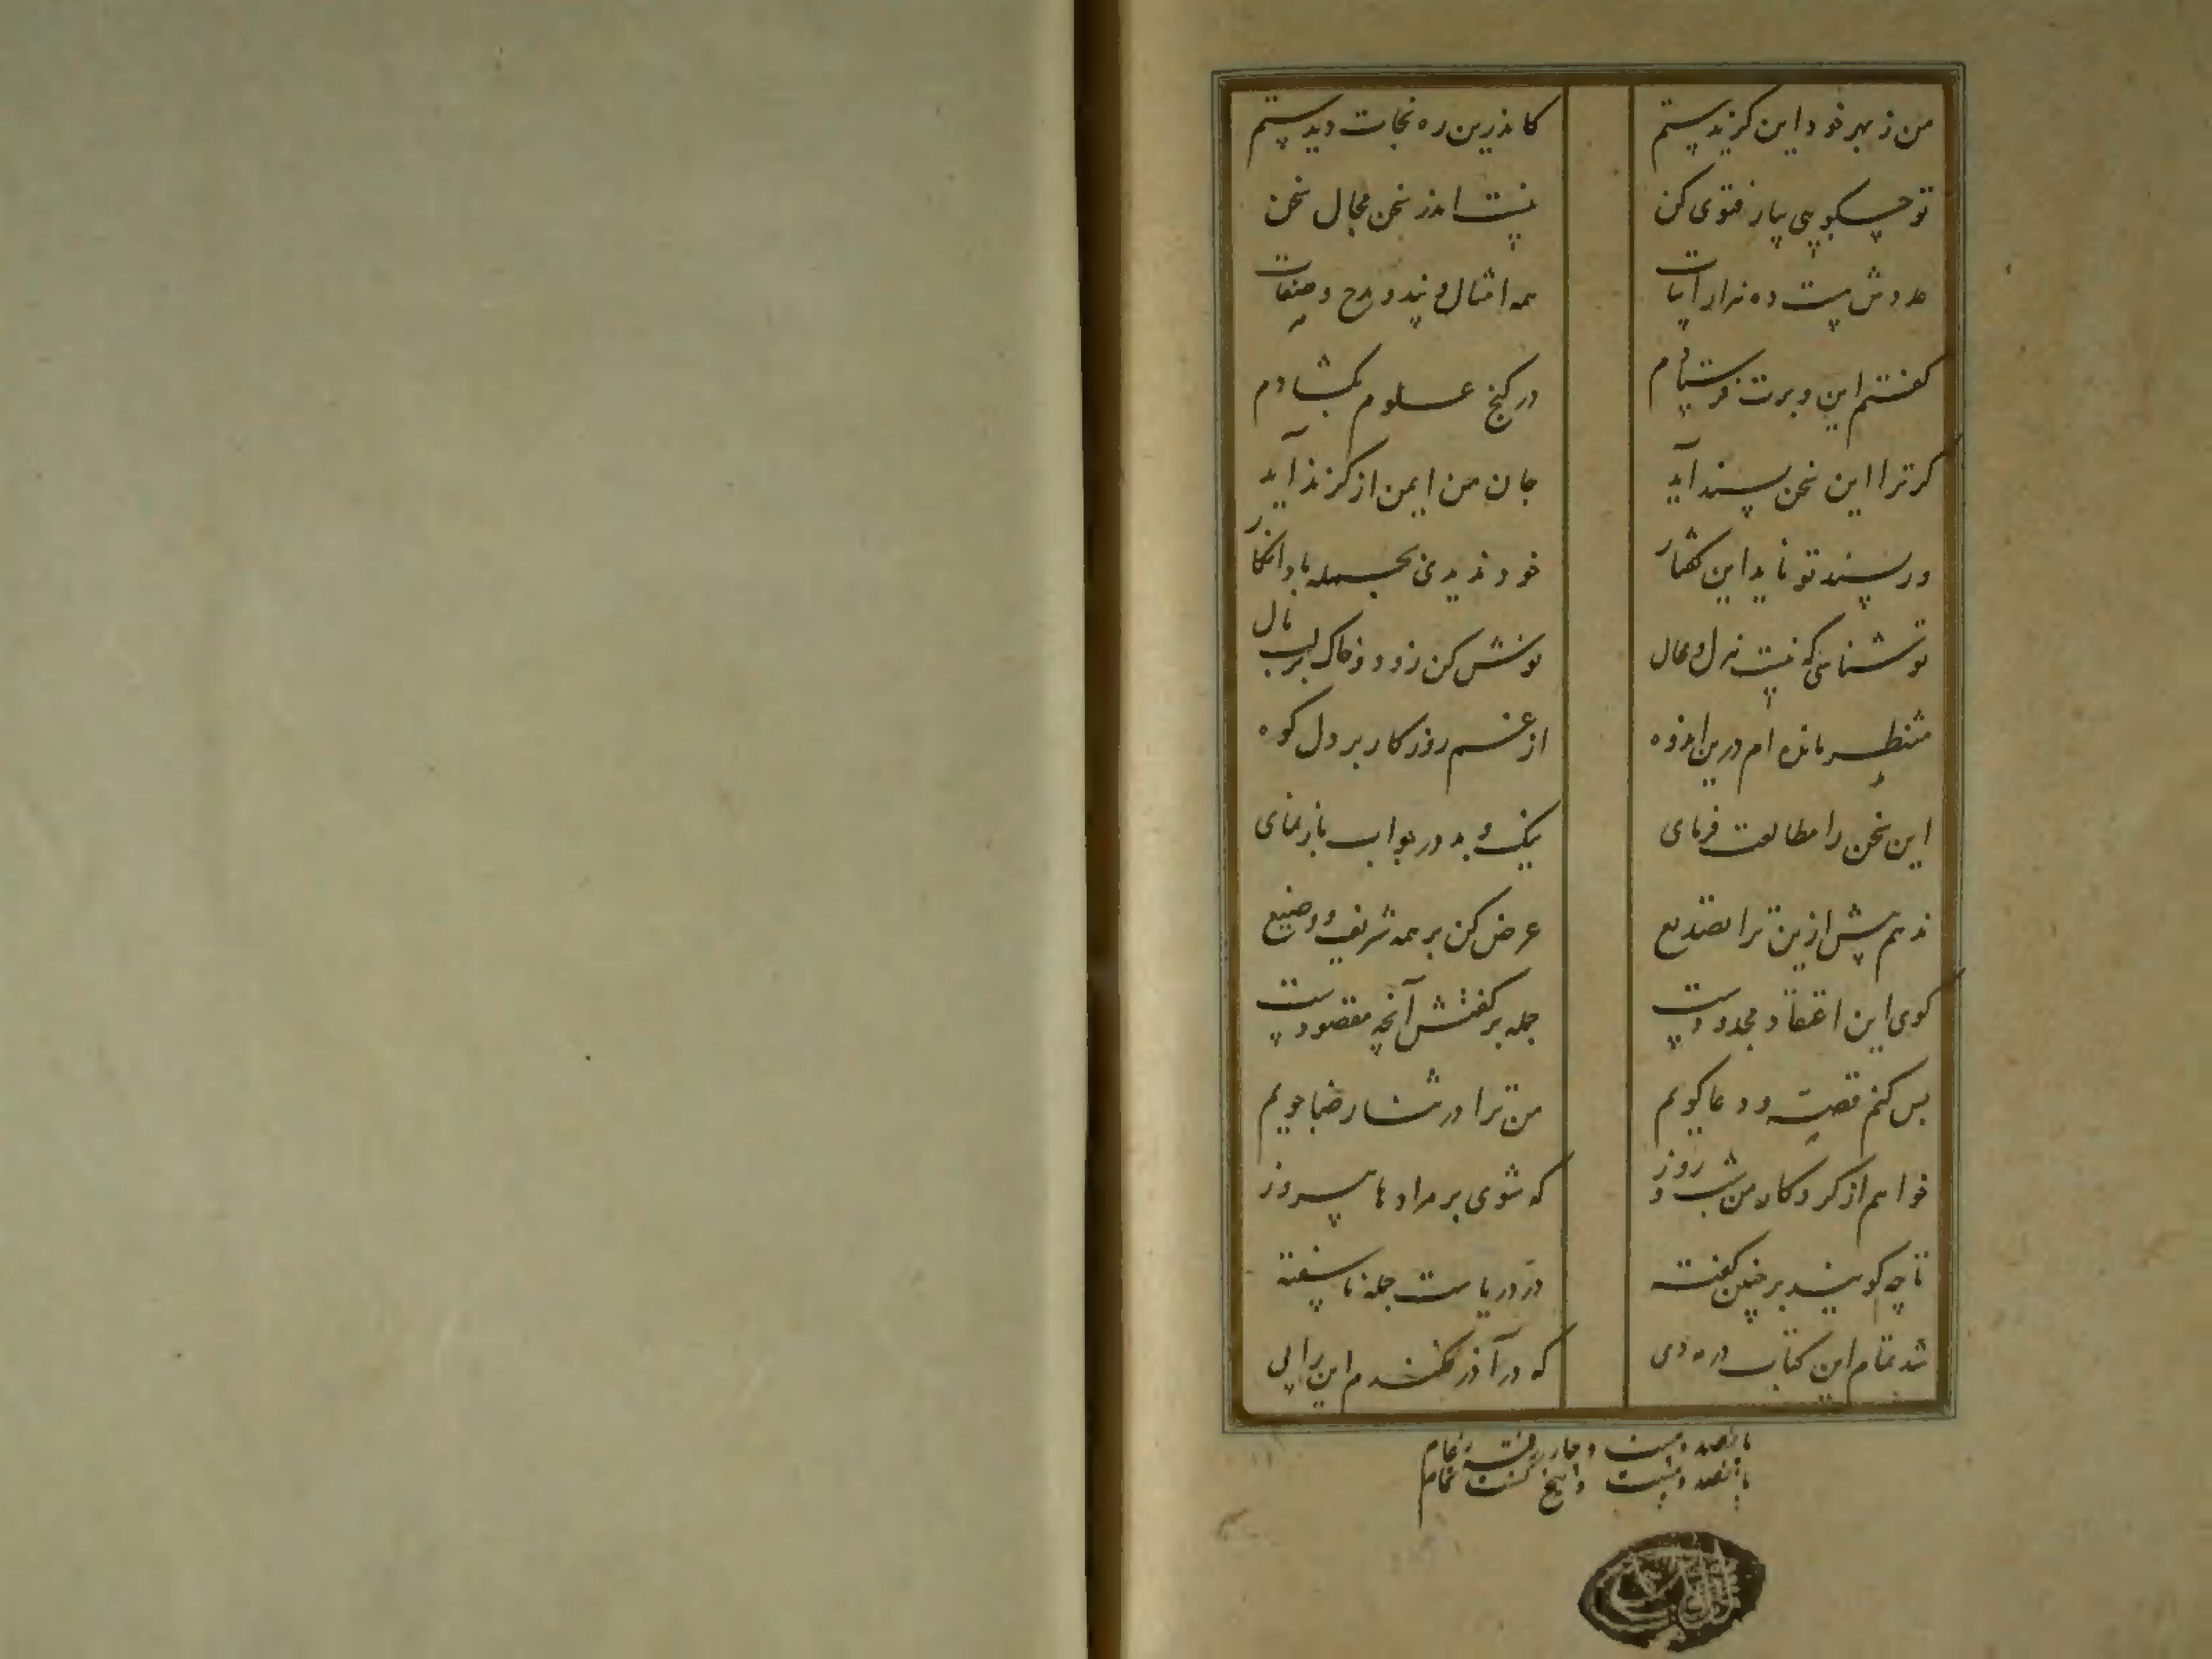 من ز بهر خود این گزیدستم کاندرین ره نجات دیدستم
تو چه گویی بیار فتوی کن نیست اندر سخن مجال سخن
عددش هست ده هزار ابیات همه امثال و پند و مدح و صفات
گفتم این و برت فرستادم در گنج علوم بگشادم
گر ترا این سخن پسند آید جان من ایمن از گزند آید
ور پسند تو ناید این گفتار خود ندیدی بجمله باد انگار
تو شناسی که نیست هزل و محال پوشش کن زود و خاک بر لب مال
منتظر مانده ام درین اندوه از غم روزگار بر دل کوه
این سخن را مطالعت فرمای نیک و بد در جواب باز نمای
ندهم بیش ازین ترا تصدیع عرض کن بر همه شریف و وضیع
گوی این اعتقاد مجدودست جمله برگفتش آنچه مقصودست
بس کنم قصه و دعا گویم من ترا در ثنا رضا جویم
خواهم از کردگار من شب و روز که شوی بر مرادها پیروز
تا چه گویند بر چنین گفته در دریاست جمله ناسفته
شد تمام این کتاب در مه دی که در آذر فکندم این را پی
پانصد و بیست و چار رفته ز عام
پانصد و بیست و پنج گشت تمام